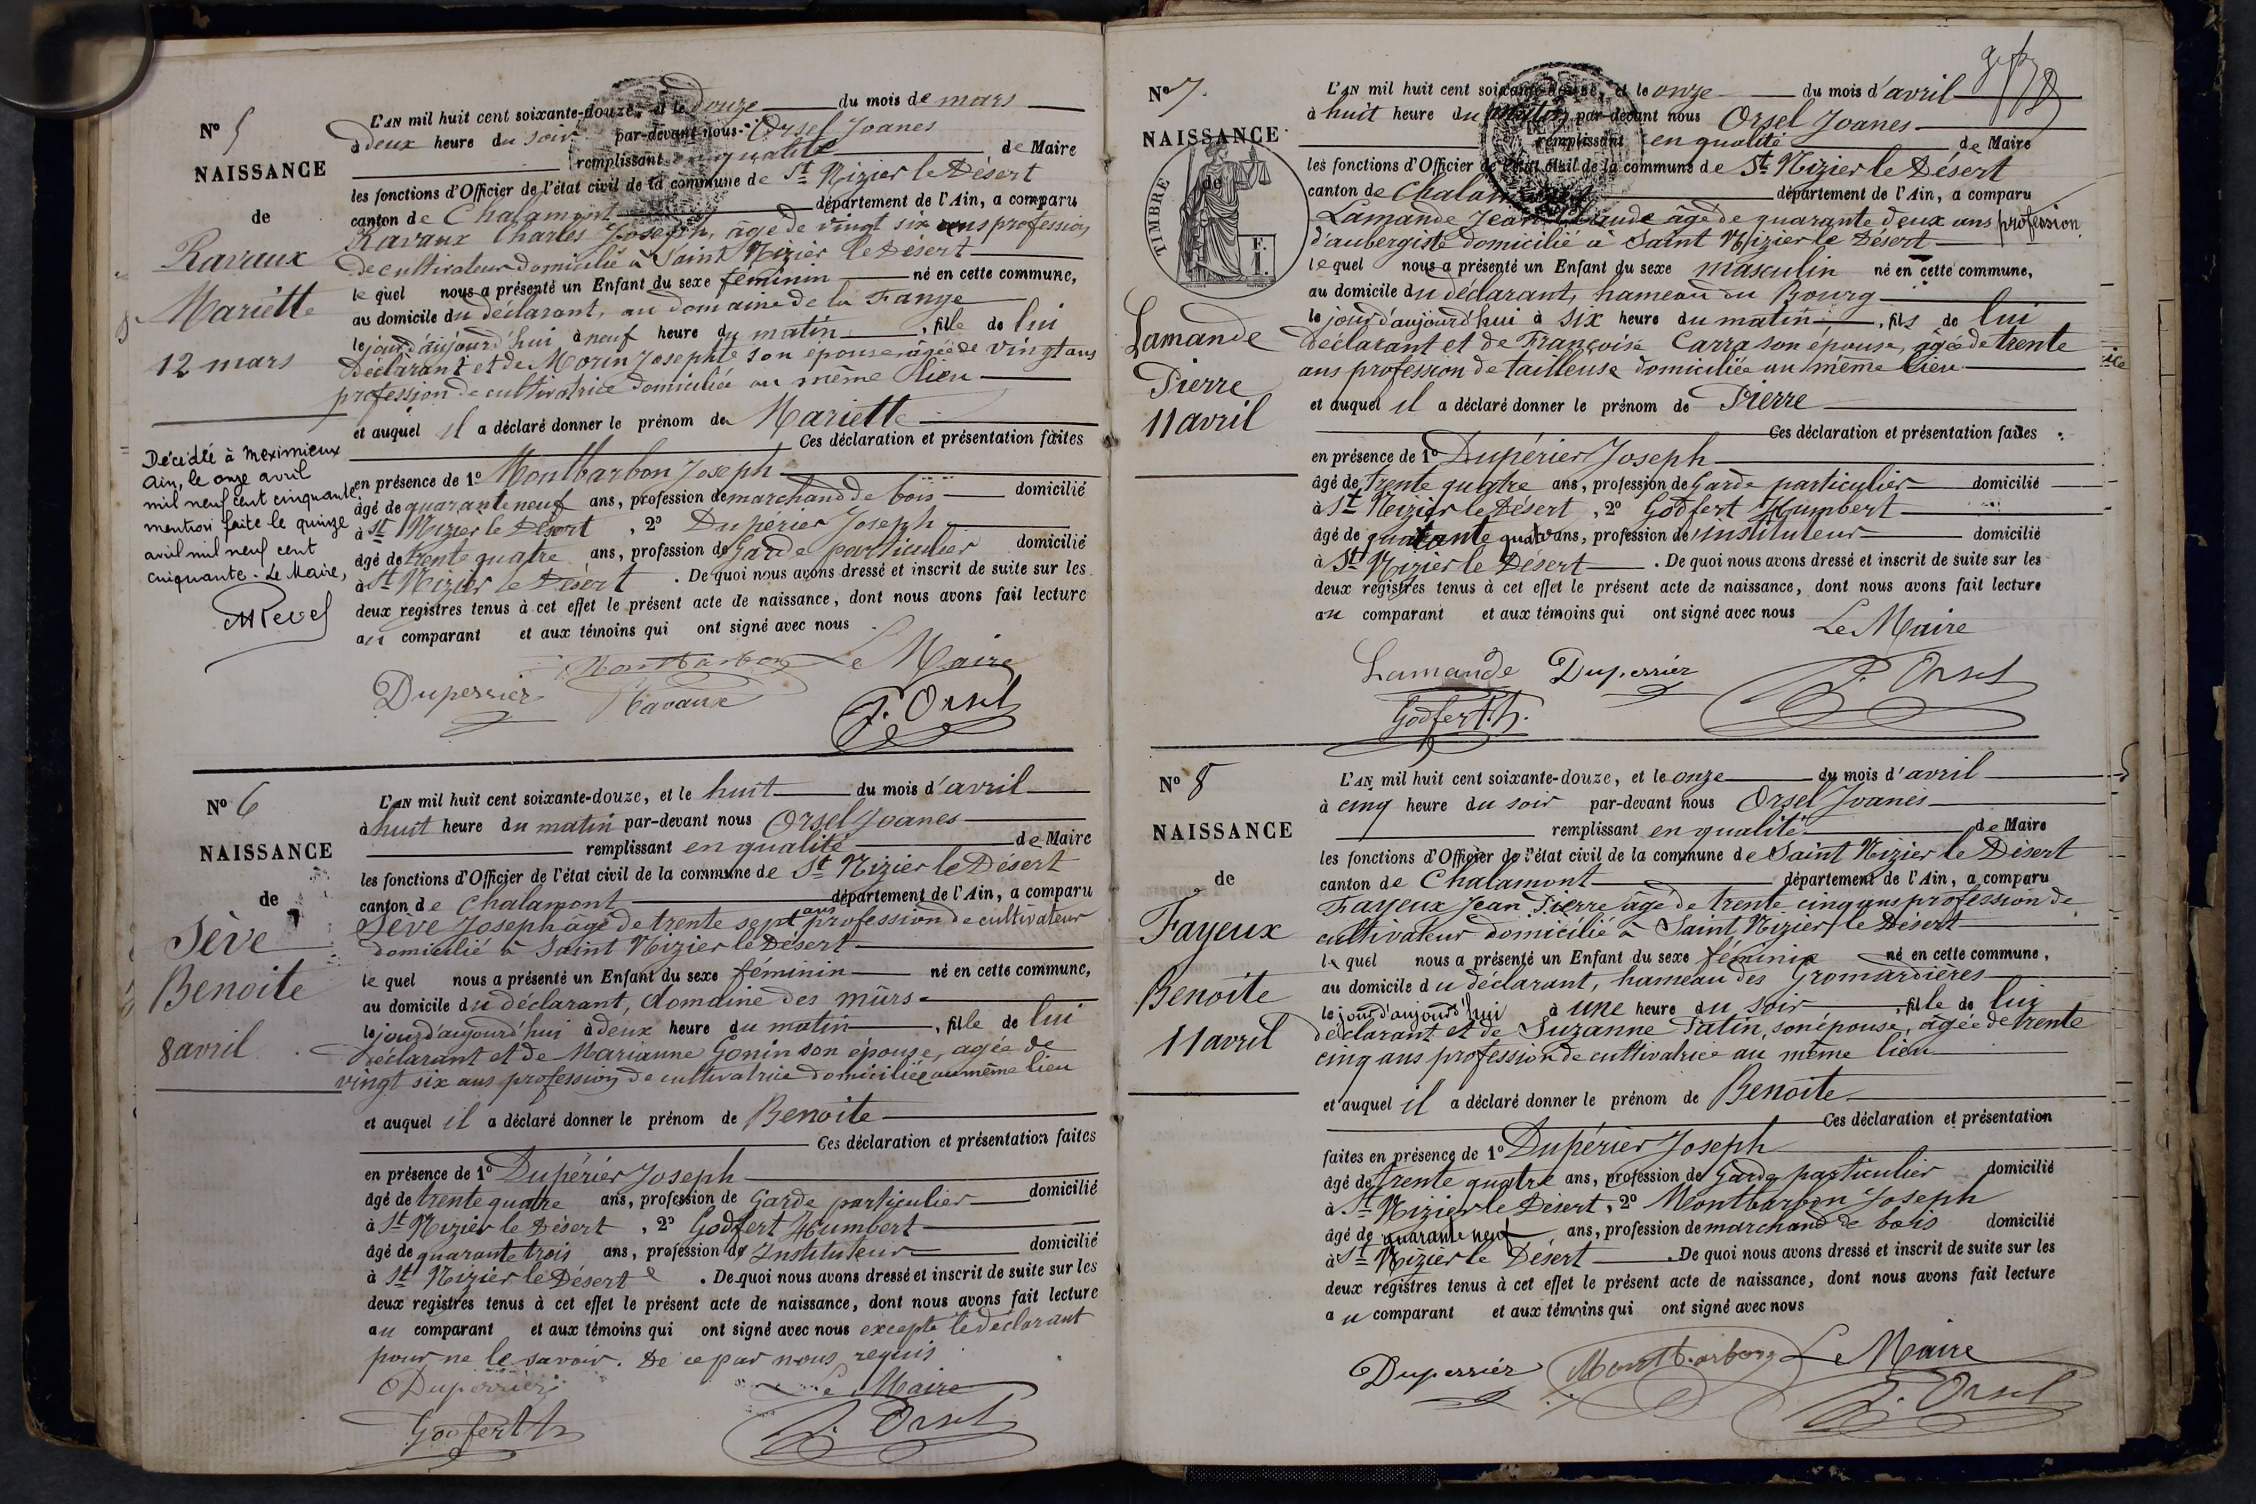 N° 5
NAISSANCE
de
Ravaux
Mariette
12 mars
Décédée à Meximieux
Ain, le onze avril
mil neuf cent cinquante
mention faite le quinze
avril mil neuf cent
cinquante. Le Maire,
L'AN mil huit cent soixante-douze, et le douze du mois de mars
à deux heure du soir par-devant nous Orsel Joanes
remplissant en qualité de Maire
les fonctions d'Officier de l'état civil de la commune de St Nizier le Désert
canton de Chalamont département de l'Ain, a comparu
Ravaux Charles Joseph, âgé de vingt six ans profession
de cultivateur domicilié à Saint Nizier le Désert
lequel nous a présenté un Enfant du sexe féminin né en cette commune,
au domicile du déclarant, au domaine de la Fange
le jour d'aujourd'hui à neuf heure du matin, fille de lui
déclarant et de Morin Josephte son épouse, âgée de vingt ans
profession de cultivatrice domiciliée au même lieu
et auquel il a déclaré donner le prénom de Mariette
Ces déclaration et présentation faites
en présence de 1° Montbarbon Joseph
âgé de quarante neuf ans, profession de marchand de bois domicilié
à St Nizier le Désert, 2° Dupérier Joseph
âgé de trente quatre ans, profession de Garde particulier domicilié
à St Nizier le Désert. De quoi nous avons dressé et inscrit de suite sur les
deux registres tenus à cet effet le présent acte de naissance, dont nous avons fait lecture
au comparant et aux témoins qui ont signé avec nous
Montbarbon Le Maire
Duperrier Ravaux J. Orsel
N° 6
NAISSANCE
de
Sève
Benoite
8 avril
L'AN mil huit cent soixante-douze, et le huit du mois d'avril
à huit heure du matin par-devant nous Orsel Joanes
remplissant en qualité de Maire
les fonctions d'Officier de l'état civil de la commune de St Nizier le Désert
canton de Chalamont département de l'Ain, a comparu
Sève Joseph âgé de trente sept ans profession de cultivateur
domicilié à Saint Nizier le Désert
lequel nous a présenté un Enfant du sexe féminin né en cette commune,
au domicile du déclarant, domaine des mûrs
le jour d'aujourd'hui à deux heure du matin, fille de lui
déclarant et de Marianne Gonin son épouse, agée de
vingt six ans profession de cultivatrice domiciliée au même lieu
et auquel il a déclaré donner le prénom de Benoite
Ces déclaration et présentation faites
en présence de 1° Dupérier Joseph
âgé de trente quatre ans, profession de Garde particulier domicilié
à St Nizier le Désert, 2° Godfert Humbert
âgé de quarante trois ans, profession de Instituteur domicilié
à St Nizier le Désert. De quoi nous avons dressé et inscrit de suite sur les
deux registres tenus à cet effet le présent acte de naissance, dont nous avons fait lecture
au comparant et aux témoins qui ont signé avec nous excepté le déclarant
pour ne le savoir. De ce par nous requis
Duperrier Le Maire
Godfert h J. Orsel
N° 7.
NAISSANCE
de
TIMBRE
F.
I.
Lamande
Pierre
11 avril
L'AN mil huit cent soixante-douze, et le onze du mois d'avril
à huit heure du matin par-devant nous Orsel Joanes
remplissant en qualité de Maire
les fonctions d'Officier de l'état civil de la commune de St Nizier le Désert
canton de Chalamont département de l'Ain, a comparu
Lamande Jean Claude âgé de quarante deux ans profession
d'aubergiste domicilié à Saint Nizier le Désert
lequel nous a présenté un Enfant du sexe masculin né en cette commune,
au domicile du déclarant, hameau du Bourg
le jour d'aujourd'hui à six heure du matin, fils de lui
déclarant et de Françoise Carra son épouse, âgée de trente
ans profession de tailleuse domiciliée au même lieu
et auquel il a déclaré donner le prénom de Pierre
Ces déclaration et présentation faites
en présence de 1° Dupérier Joseph
âgé de trente quatre ans, profession de Garde particulier domicilié
à St Nizier le Désert, 2° Godfert Humbert
âgé de quarante quatre ans, profession de instituteur domicilié
à St Nizier le Désert. De quoi nous avons dressé et inscrit de suite sur les
deux registres tenus à cet effet le présent acte de naissance, dont nous avons fait lecture
au comparant et aux témoins qui ont signé avec nous
Le Maire
Lamande Duperrier J. Orsel
Godfert. h.
N° 8
NAISSANCE
de
Fayeux
Benoite
11 avril
L'AN mil huit cent soixante-douze, et le onze du mois d'avril
à cinq heure du soir par-devant nous Orsel Joanes
remplissant en qualité de Maire
les fonctions d'Officier de l'état civil de la commune de Saint Nizier le Désert
canton de Chalamont département de l'Ain, a comparu
Fayeux Jean Pierre âgé de trente cinq ans profession de
cultivateur domicilié à Saint Nizier le Désert
lequel nous a présenté un Enfant du sexe féminin né en cette commune,
au domicile du déclarant, hameau des Gromardières
le jour d'aujourd'hui à une heure du soir, fille de lui
déclarant et de Suzanne Patin, son épouse, âgée de trente
cinq ans profession de cultivatrice au même lieu
et auquel il a déclaré donner le prénom de Benoite
Ces déclaration et présentation
faites en présence de 1° Dupérier Joseph
âgé de trente quatre ans, profession de Garde particulier domicilié
à St Nizier le Désert, 2° Montbarbon Joseph
âgé de quarante neuf ans, profession de marchand de bois domicilié
à St Nizier le Désert. De quoi nous avons dressé et inscrit de suite sur les
deux registres tenus à cet effet le présent acte de naissance, dont nous avons fait lecture
au comparant et aux témoins qui ont signé avec nous
Duperrier Montbarbon Le Maire
J. Orsel